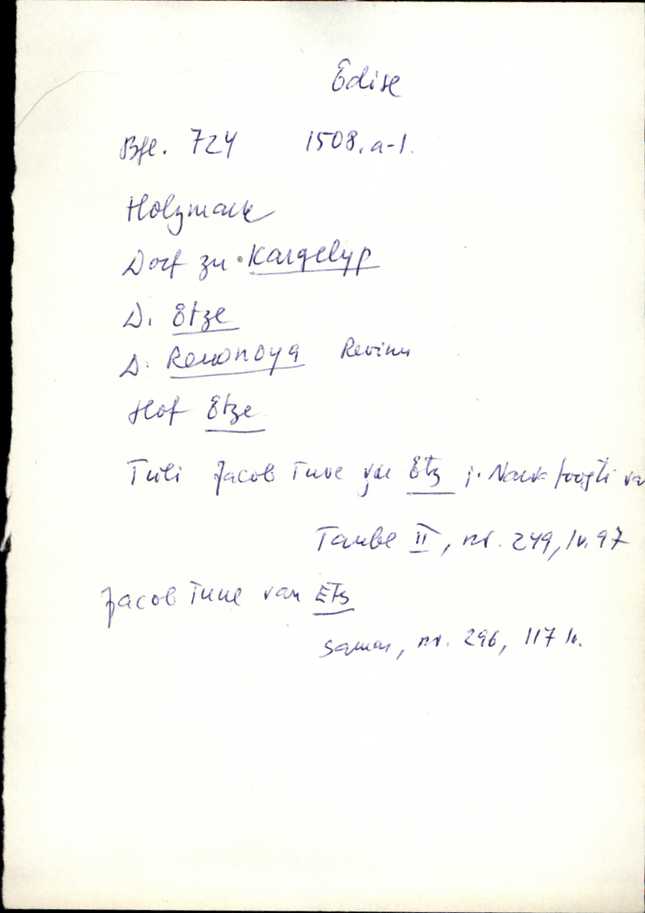 Edise
Bfl. 724 1508. a-1.
Holzmark
Dorf zu Kargelyp
D. Etze
D. Rewonoya Revinu
Hof Etze
Tüli Jacob Tuve Etz j. Narva foogti va
Taube II, nr. 249, lk. 97
Jacob Tuve van Etz
Samas, nr. 296, 117 lk.